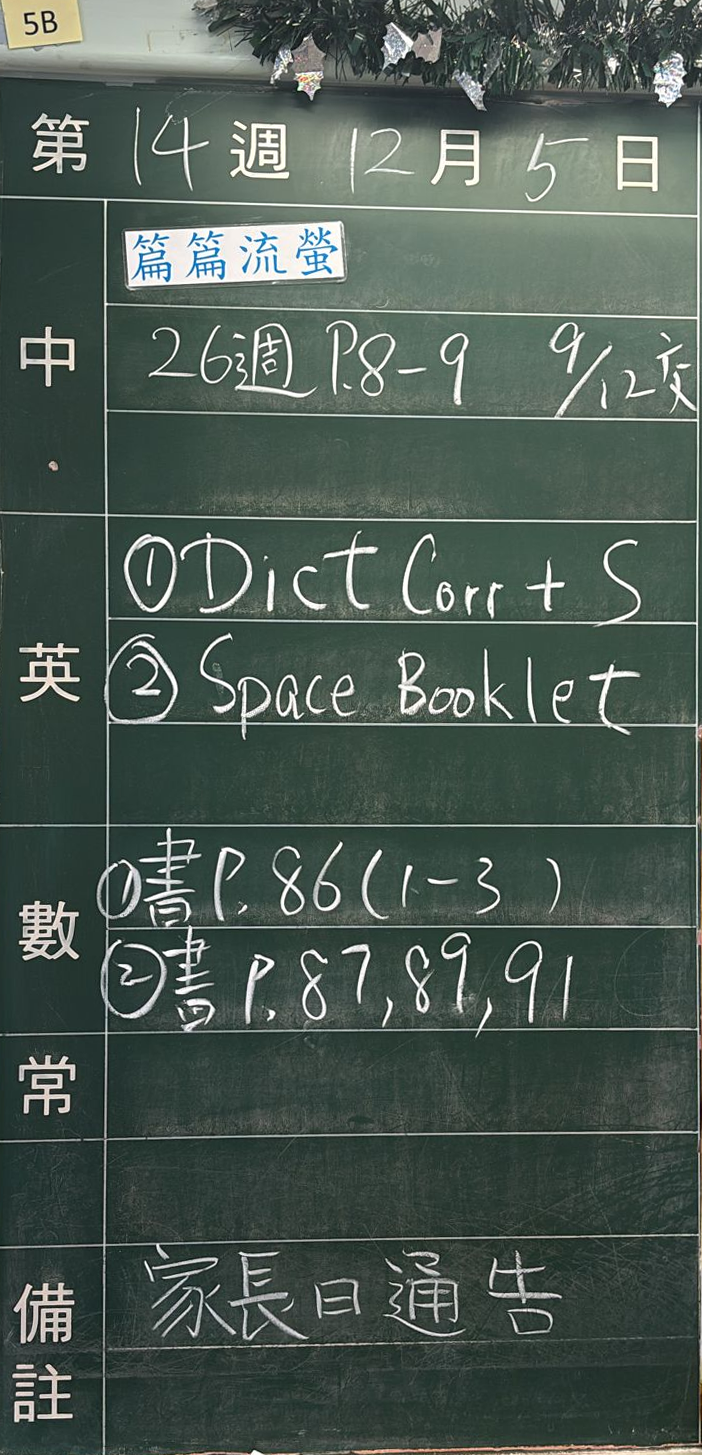 5B
第 14 週 12 月 5 日
篇篇流螢
中
26週 P.8-9 9/12交
①Dict Corr + S
英
② Space Booklet
①書 P.86(1-3)
數
②書 P.87,89,91
常
家長日通告
備註